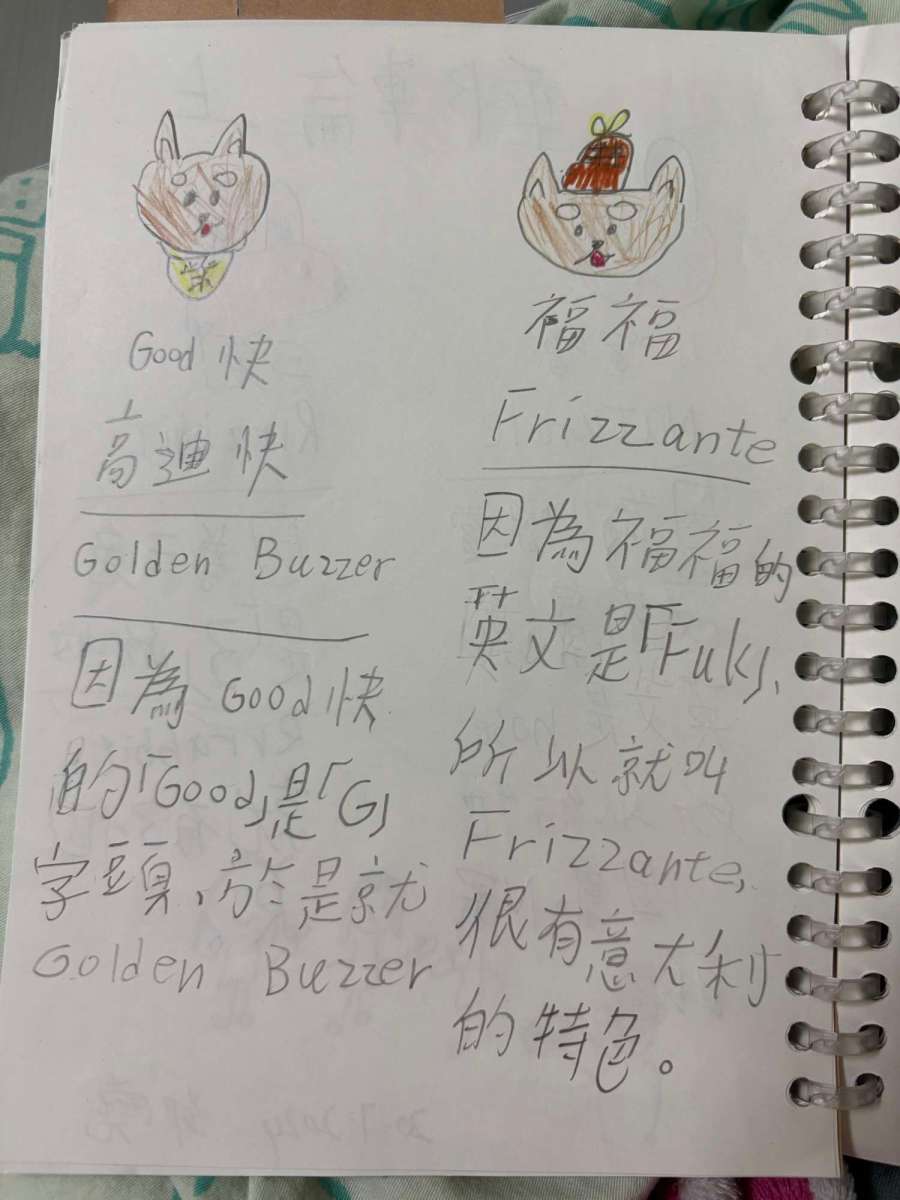 Good 快
高迪快
Golden Buzzer
因為 Good 快
的「Good」是「G」
字頭，於是就
Golden Buzzer
福福
Frizzante
因為福福的
英文是「Fuk」，
所以就叫
Frizzante，
很有意大利
的特色。